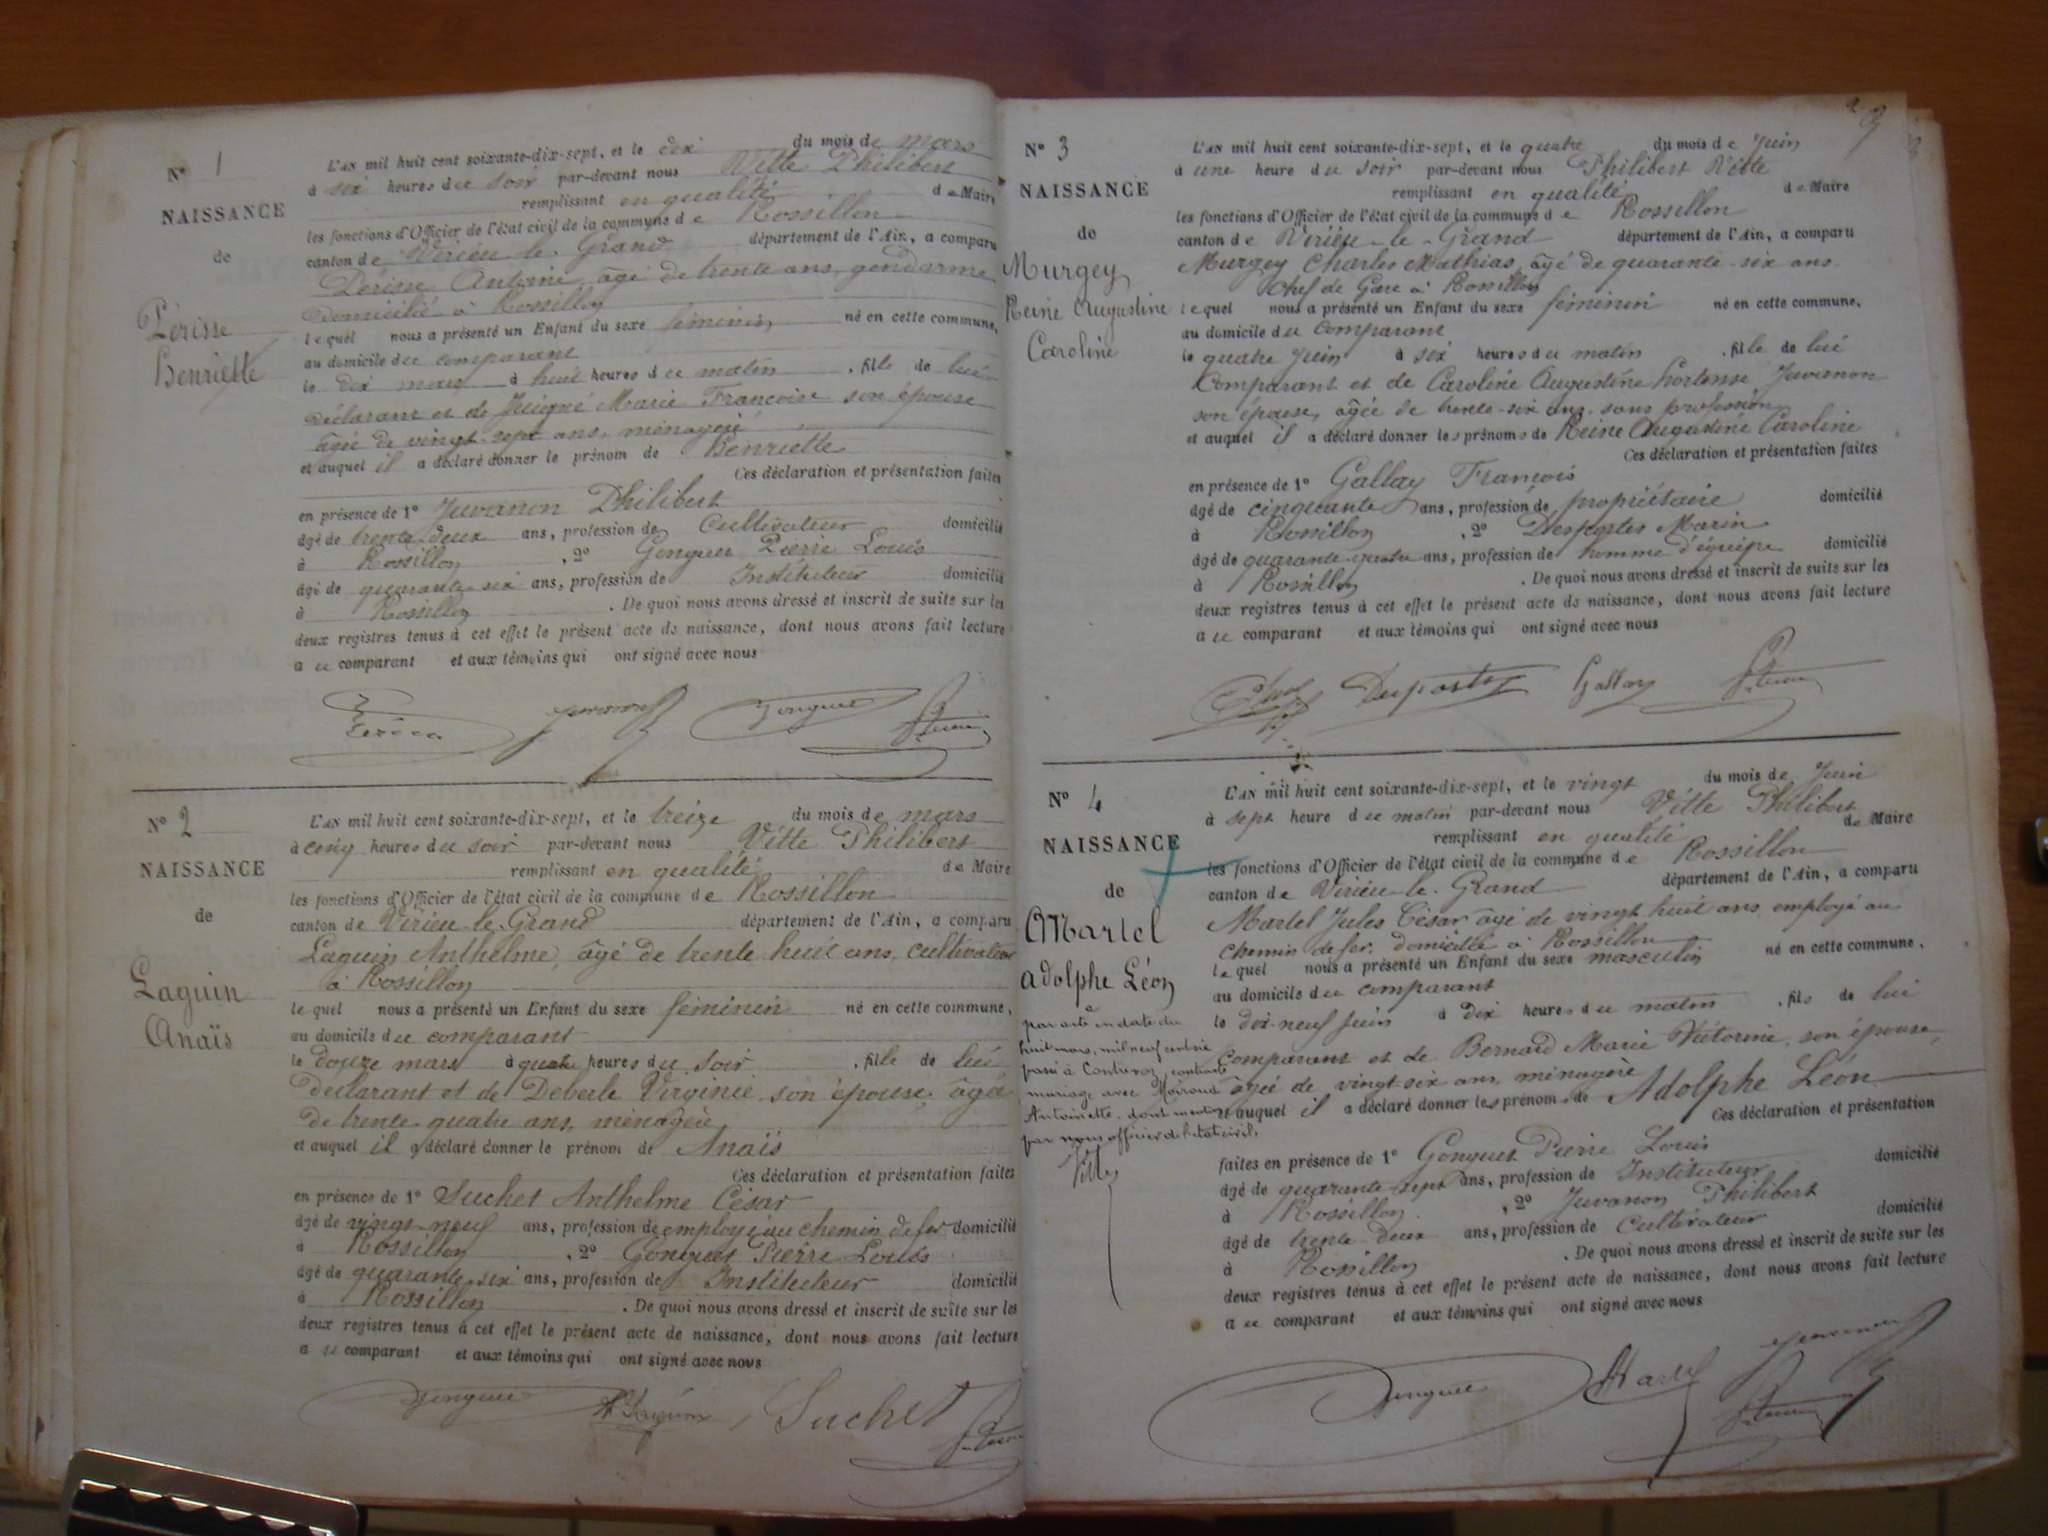 N° 1
NAISSANCE
de
Périsse
Henriette
L'AN mil huit cent soixante-dix-sept, et le dix du mois de mars
à six heures du soir par-devant nous Vitte Philibert
remplissant en qualité de Maire
les fonctions d'Officier de l'état civil de la commune de Rossillon
canton de Virieu le Grand département de l'Ain, a comparu
Périsse Antoine, âgé de trente ans, gendarme
domicilié à Rossillon
lequel nous a présenté un Enfant du sexe féminin né en cette commune,
au domicile du comparant
le dix mars à huit heures du matin, fille de lui
déclarant et de Marie Françoise son épouse
âgée de vingt-sept ans, ménagère
et auquel il a déclaré donner le prénom de Henriette
Ces déclaration et présentation faites
en présence de 1° Juvanon Philibert
âgé de trente deux ans, profession de Cultivateur domicilié
à Rossillon, 2° Gonguet Pierre Louis
âgé de quarante-six ans, profession de Instituteur domicilié
à Rossillon. De quoi nous avons dressé et inscrit de suite sur les
deux registres tenus à cet effet le présent acte de naissance, dont nous avons fait lecture
au comparant et aux témoins qui ont signé avec nous
Juvanon Gonguet
N° 2
NAISSANCE
de
Laguin
Anaïs
L'AN mil huit cent soixante-dix-sept, et le treize du mois de mars
à cinq heures du soir par-devant nous Vitte Philibert
remplissant en qualité de Maire
les fonctions d'Officier de l'état civil de la commune de Rossillon
canton de Virieu le Grand département de l'Ain, a comparu
Laguin Anthelme, âgé de trente huit ans, cultivateur
à Rossillon
lequel nous a présenté un Enfant du sexe féminin né en cette commune,
au domicile du comparant
le douze mars à quatre heures du soir, fille de lui
déclarant et de Debeile Virginie son épouse, âgée
de trente-quatre ans, ménagère
et auquel il a déclaré donner le prénom de Anaïs
Ces déclaration et présentation faites
en présence de 1° Suchet Anthelme César
âgé de vingt-neuf ans, profession de employé au chemin de fer domicilié
à Rossillon, 2° Gonguet Pierre Louis
âgé de quarante-six ans, profession de Instituteur domicilié
à Rossillon. De quoi nous avons dressé et inscrit de suite sur les
deux registres tenus à cet effet le présent acte de naissance, dont nous avons fait lecture
au comparant et aux témoins qui ont signé avec nous
Gonguet Laguin Suchet
N° 3
NAISSANCE
de
Murgey
Reine Augustine
Caroline
L'AN mil huit cent soixante-dix-sept, et le quatre du mois de Juin
à une heure du soir par-devant nous Philibert Vitte
remplissant en qualité de Maire
les fonctions d'Officier de l'état civil de la commune de Rossillon
canton de Virieu-le-Grand département de l'Ain, a comparu
Murgey Charles Mathias, âgé de quarante-six ans
chef de Gare à Rossillon
lequel nous a présenté un Enfant du sexe féminin né en cette commune,
au domicile du comparant
le quatre Juin à six heures du matin, fille de lui
comparant et de Caroline Augustine Hortense Juvanon
son épouse, âgée de trente-six ans, sans profession
et auquel il a déclaré donner les prénoms de Reine Augustine Caroline
Ces déclaration et présentation faites
en présence de 1° Gallay François
âgé de cinquante ans, profession de propriétaire domicilié
à Rossillon, 2° Desportes Marin
âgé de quarante-quatre ans, profession de homme d'équipe domicilié
à Rossillon. De quoi nous avons dressé et inscrit de suite sur les
deux registres tenus à cet effet le présent acte de naissance, dont nous avons fait lecture
au comparant et aux témoins qui ont signé avec nous
Desportes Gallay
N° 4
NAISSANCE
de
Martel
Adolphe Léon
par acte en date du
huit mars, mil neuf cent
passé à Contrevoz, contracté
mariage avec
Antoinette, dont mention
par nous officier de l'état civil,
Vitte
L'AN mil huit cent soixante-dix-sept, et le vingt du mois de Juin
à sept heure du matin par-devant nous Vitte Philibert
remplissant en qualité de Maire
les fonctions d'Officier de l'état civil de la commune de Rossillon
canton de Virieu-le-Grand département de l'Ain, a comparu
Martel Jules César âgé de vingt huit ans employé au
chemin de fer, domicilié à Rossillon
lequel nous a présenté un Enfant du sexe masculin né en cette commune,
au domicile du comparant
le dix-neuf Juin à dix heures du matin, fils de lui
comparant et de Bernard Marie Victorine, son épouse,
âgée de vingt-six ans, ménagère
et auquel il a déclaré donner les prénoms de Adolphe Léon
Ces déclaration et présentation
faites en présence de 1° Gonguet Pierre Louis
âgé de quarante-sept ans, profession de Instituteur domicilié
à Rossillon, 2° Juvanon Philibert
âgé de trente-deux ans, profession de Cultivateur domicilié
à Rossillon. De quoi nous avons dressé et inscrit de suite sur les
deux registres tenus à cet effet le présent acte de naissance, dont nous avons fait lecture
au comparant et aux témoins qui ont signé avec nous
Gonguet Martel Juvanon